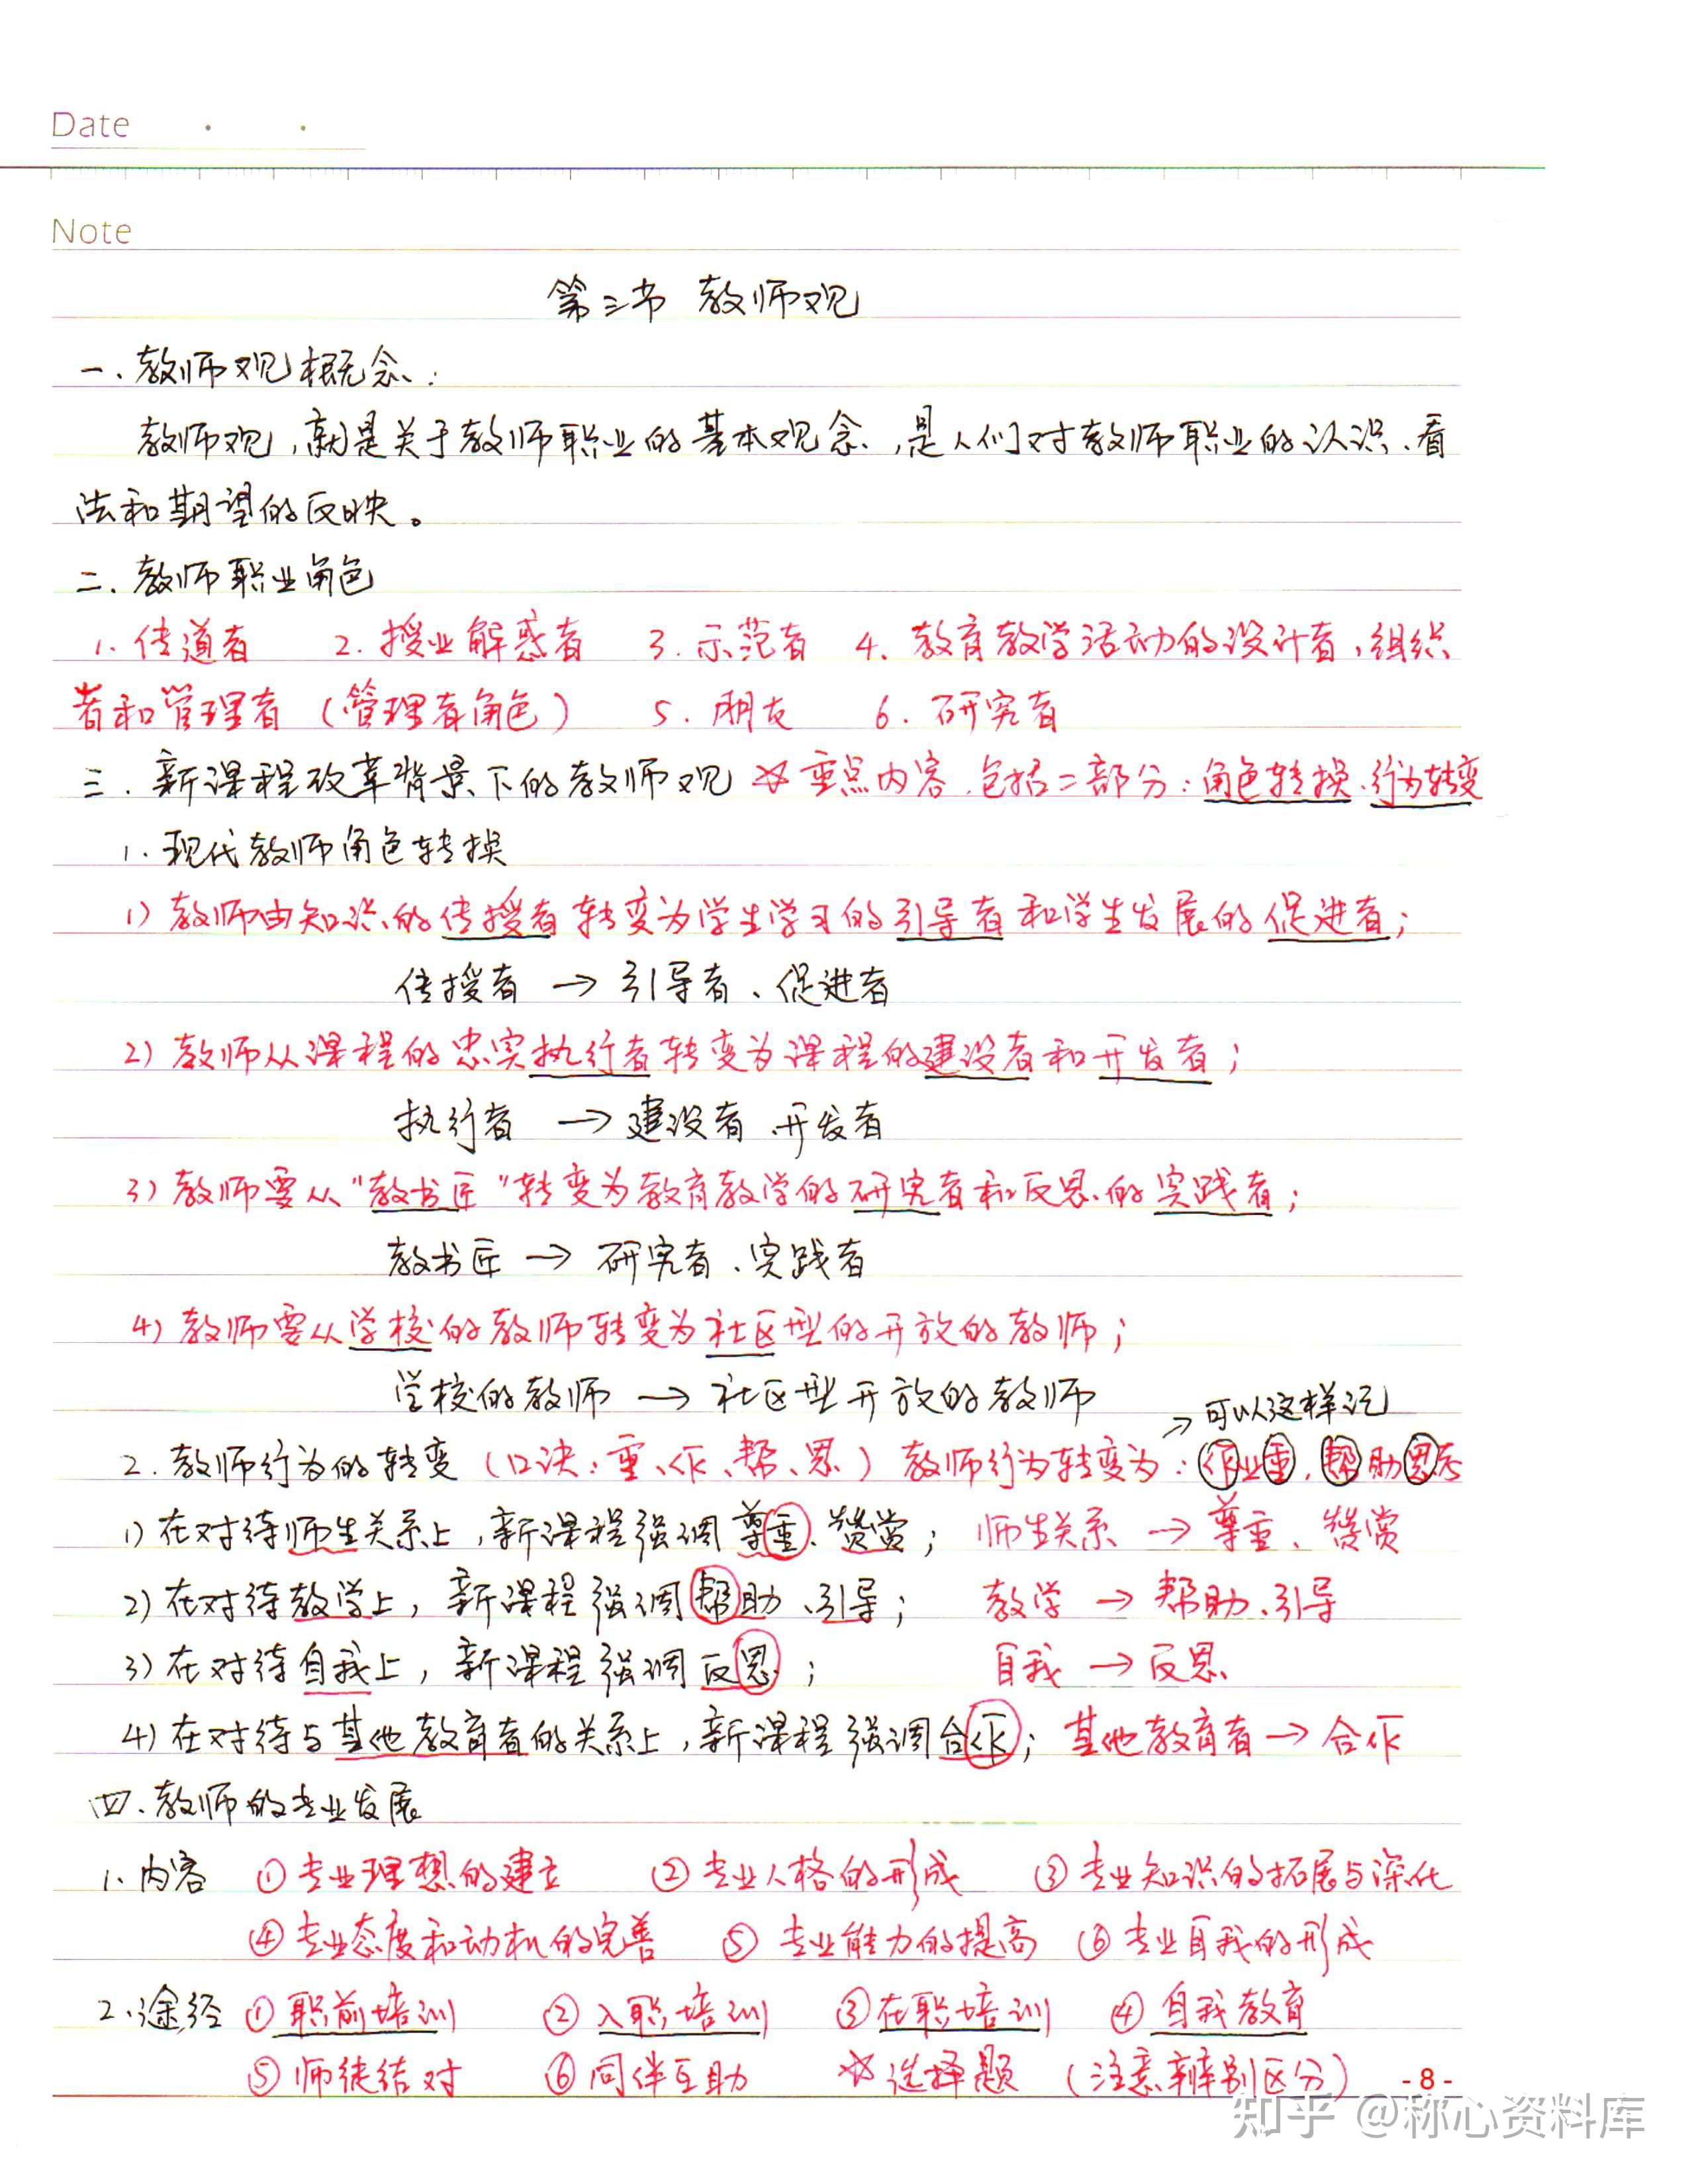 Date
Note
第三节 教师观
一、教师观概念：
教师观，就是关于教师职业的基本观念，是人们对教师职业的认识、看
法和期望的反映。
二、教师职业角色
1. 传道者 2. 授业解惑者 3. 示范者 4. 教育教学活动的设计者，组织
者和管理者（管理者角色） 5. 朋友 6. 研究者
三、新课程改革背景下的教师观 ☆重点内容、包括二部分：角色转换、行为转变
1. 现代教师角色转换
1) 教师由知识的传授者转变为学生学习的引导者和学生发展的促进者；
传授者 → 引导者、促进者
2) 教师从课程的忠实执行者转变为课程的建设者和开发者；
执行者 → 建设者、开发者
3) 教师要从“教书匠”转变为教育教学的研究者和反思的实践者；
教书匠 → 研究者、实践者
4) 教师要从学校的教师转变为社区型的开放的教师；
学校的教师 → 社区型开放的教师
→ 可以这样记
2. 教师行为的转变（口诀：重、作、帮、思）教师行为转变为：作业重，帮助思考
1) 在对待师生关系上，新课程强调尊重、赞赏； 师生关系 → 尊重、赞赏
2) 在对待教学上，新课程强调帮助、引导； 教学 → 帮助、引导
3) 在对待自我上，新课程强调反思； 自我 → 反思
4) 在对待与其他教育者的关系上，新课程强调合作； 其他教育者 → 合作
四、教师的专业发展
1. 内容 ①专业理想的建立 ②专业人格的形成 ③专业知识的拓展与深化
④专业态度和动机的完善 ⑤专业能力的提高 ⑥专业自我的形成
2. 途径 ①职前培训 ②入职培训 ③在职培训 ④自我教育
⑤师徒结对 ⑥同伴互助 ☆选择题（注意辨别区分） -8-
知乎 @称心资料库